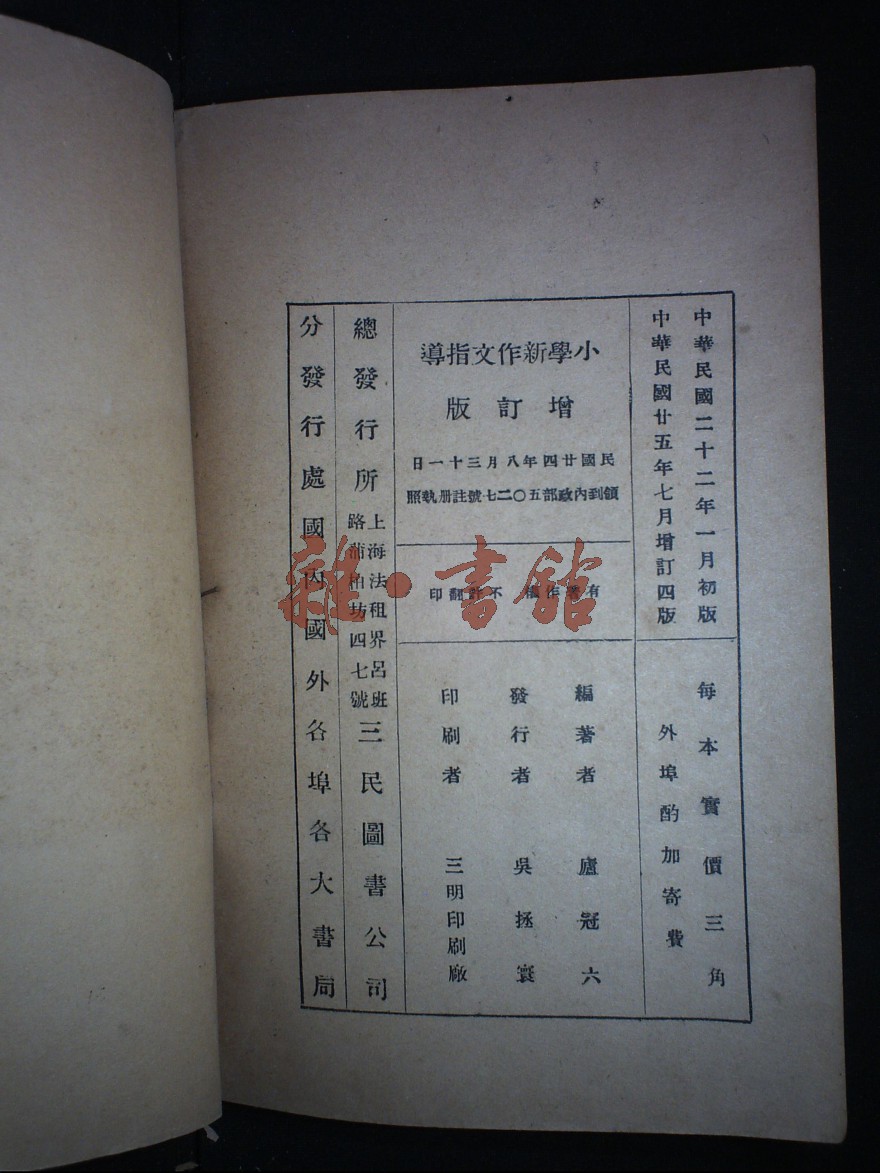 中華民國二十二年一月初版
中華民國廿五年七月增訂四版
每本實價三角
外埠酌加寄費
小學新作文指導
增訂版
民國廿四年八月三十一日
領到內政部五〇二七號註册執照
有著作權 不許翻印
編著者 盧冠六
發行者 吳拯寰
印刷者 三明印刷廠
總發行所 上海法租界呂班路蒲柏坊四七號 三民圖書公司
分發行處國內國外各埠各大書局
雜·書館